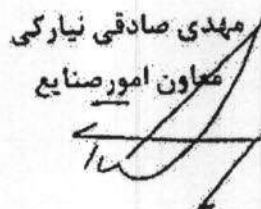 مهدی صادقی نیارکی
معاون امور صنایع